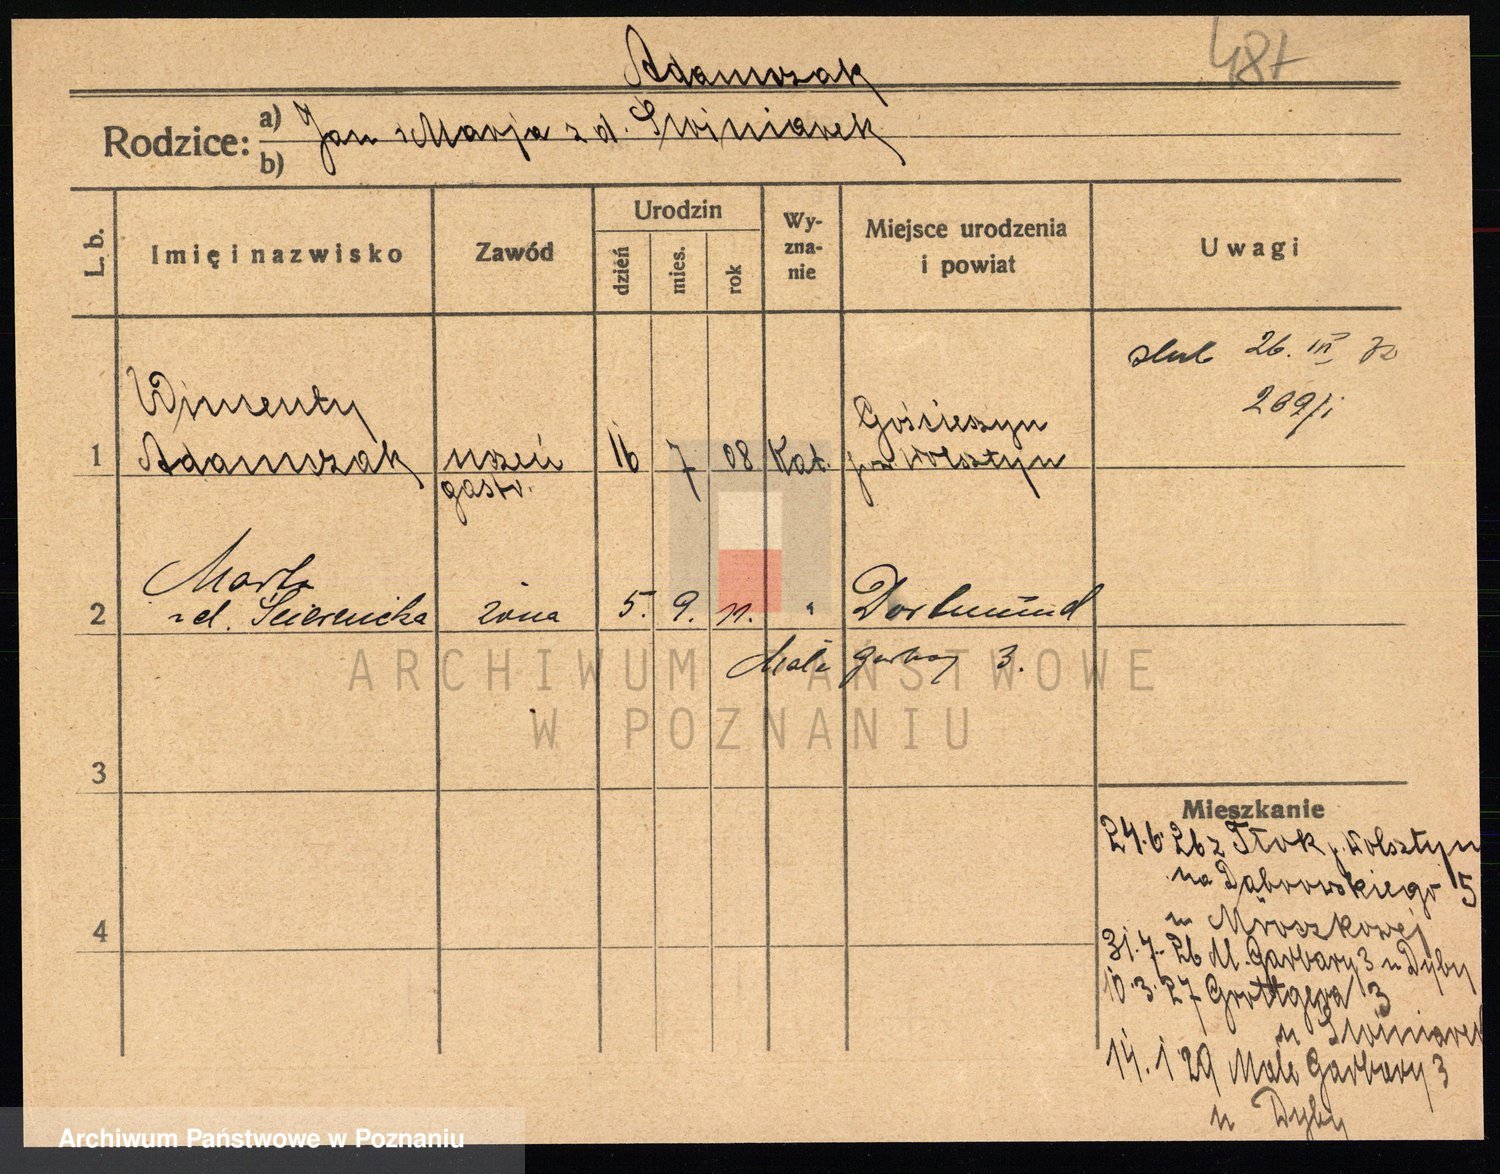 Adamczak
487
Rodzice:
a) Jan i Marja z d. Świniarek
b)
L. b.
Imię i nazwisko
Zawód
Urodzin
dzień
mies.
rok
Wy-
zna-
nie
Miejsce urodzenia
i powiat
Uwagi
ślub 26. III 32
269/I
1
Wincenty
Adamczak
uczeń
gastr.
16
7
08
Kat.
Gościeszyn
pow. Wolsztyn
2
Marta
z d. Ściernicka
żona
5.
9.
11.
"
Dortmund
Małe Garbary 3.
ARCHIWUM PAŃSTWOWE
W POZNANIU
3
4
Mieszkanie
24.6.26 z Tłok p. Wolsztyn
na Dąbrowskiego 5
u Mroszkowej
31.7.26 M. Garbary 3 u Dyby
10.3.27 Grottgera 3
u Świniarek
14.1 29 Małe Garbary 3
u Dyby
Archiwum Państwowe w Poznaniu